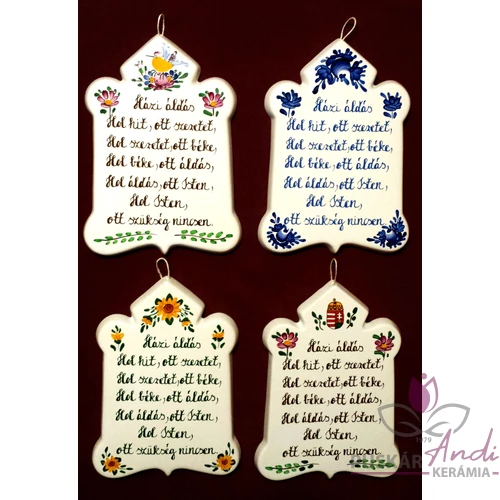 Házi áldás
Hol hit, ott szeretet,
Hol szeretet, ott béke,
Hol béke, ott áldás,
Hol áldás, ott Isten,
Hol Isten,
ott szükség nincsen.
Házi áldás
Hol hit, ott szeretet,
Hol szeretet, ott béke,
Hol béke, ott áldás,
Hol áldás, ott Isten,
Hol Isten,
ott szükség nincsen.
Házi áldás
Hol hit, ott szeretet,
Hol szeretet, ott béke,
Hol béke, ott áldás,
Hol áldás, ott Isten,
Hol Isten,
ott szükség nincsen.
Házi áldás
Hol hit, ott szeretet,
Hol szeretet, ott béke,
Hol béke, ott áldás,
Hol áldás, ott Isten,
Hol Isten,
ott szükség nincsen.
1979
Andi
KERÁMIA